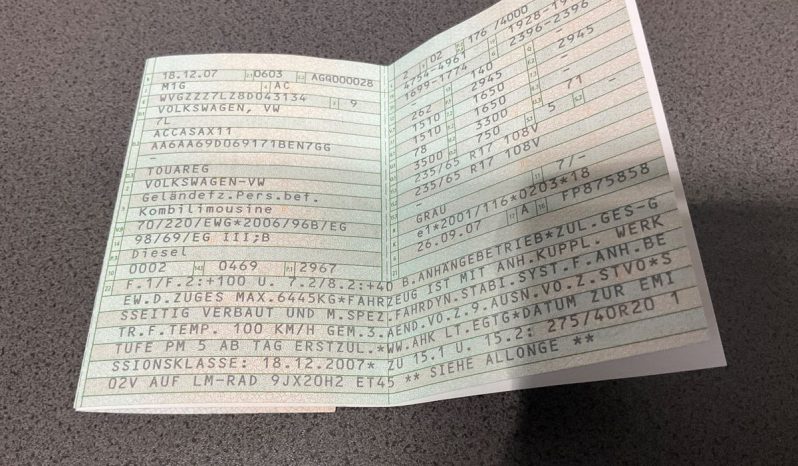 18.12.07 0603 AGQ000028
M1G AC
WVGZZZ7LZ8D043134 9
VOLKSWAGEN, VW
7L
ACCASAX11
AA6AA69D069171BEN7GG
-
TOUAREG
VOLKSWAGEN-VW
Geländefz.Pers.bef.
Kombilimousine
70/220/EWG*2006/96B/EG
98/69/EG III;B
Diesel
0002 0469 2967
2 02 176 /4000
4754-4961 1928-19
1699-1774 2396-2396
- 140 2945
262 2945 -
1510 1650 -
1510 1650 -
78 3300 71
3500 750 5
235/65 R17 108V
235/65 R17 108V
-
GRAU 7/-
e1*2001/116*0203*18
26.09.07 A FP875858
F.1/F.2:+100 U. 7.2/8.2:+40 B.ANHÄNGEBETRIEB*ZUL.GES-G
EW.D.ZUGES MAX.6445KG*FAHRZEUG IST MIT ANH.KUPPL. WERK
SSEITIG VERBAUT UND M.SPEZ.FAHRDYN.STABI.SYST.F.ANH.BE
TR.F.TEMP. 100 KM/H GEM.3.AEND.VO.Z.9.AUSN.VO.Z.STVO*S
TUFE PM 5 AB TAG ERSTZUL.*WW.AHK LT.EGTG*DATUM ZUR EMI
SSIONSKLASSE: 18.12.2007* ZU 15.1 U. 15.2: 275/40R20 1
02V AUF LM-RAD 9JX20H2 ET45 ** SIEHE ALLONGE **